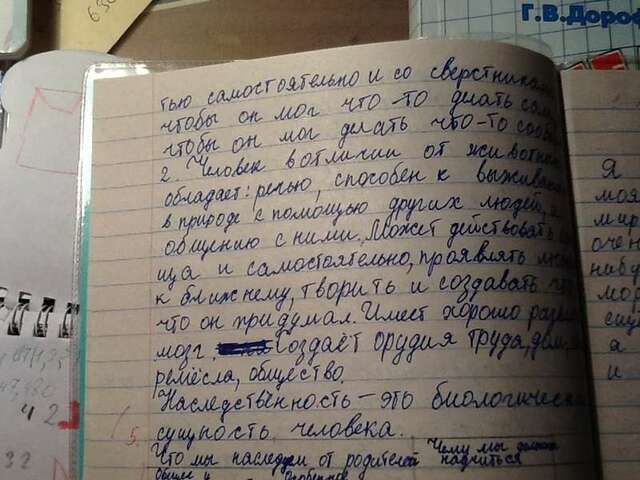 Г.В.Дороф
тью самостоятельно и со сверстниками
чтобы он мог что-то делать сам
чтобы он мог делать что-то сооб
2. Человек в отличии от животн
обладает: речью, способен к выжива
в природе с помощью других людей, и
общению с ними. Может действовать
ща и самостоятельно, проявлять
к ближнему, творить и создавать
что он придумал. Имеет хорошо разви
мозг. Создаёт орудия труда, дом
ремёсла, общество.
Наследственность – это биологическая
сущность человека.
5.
Что мы наследуем от родителей Чему мы должны
научиться
Я
моя
мир
очен
набир
мозг
сущ
а
и
42
32